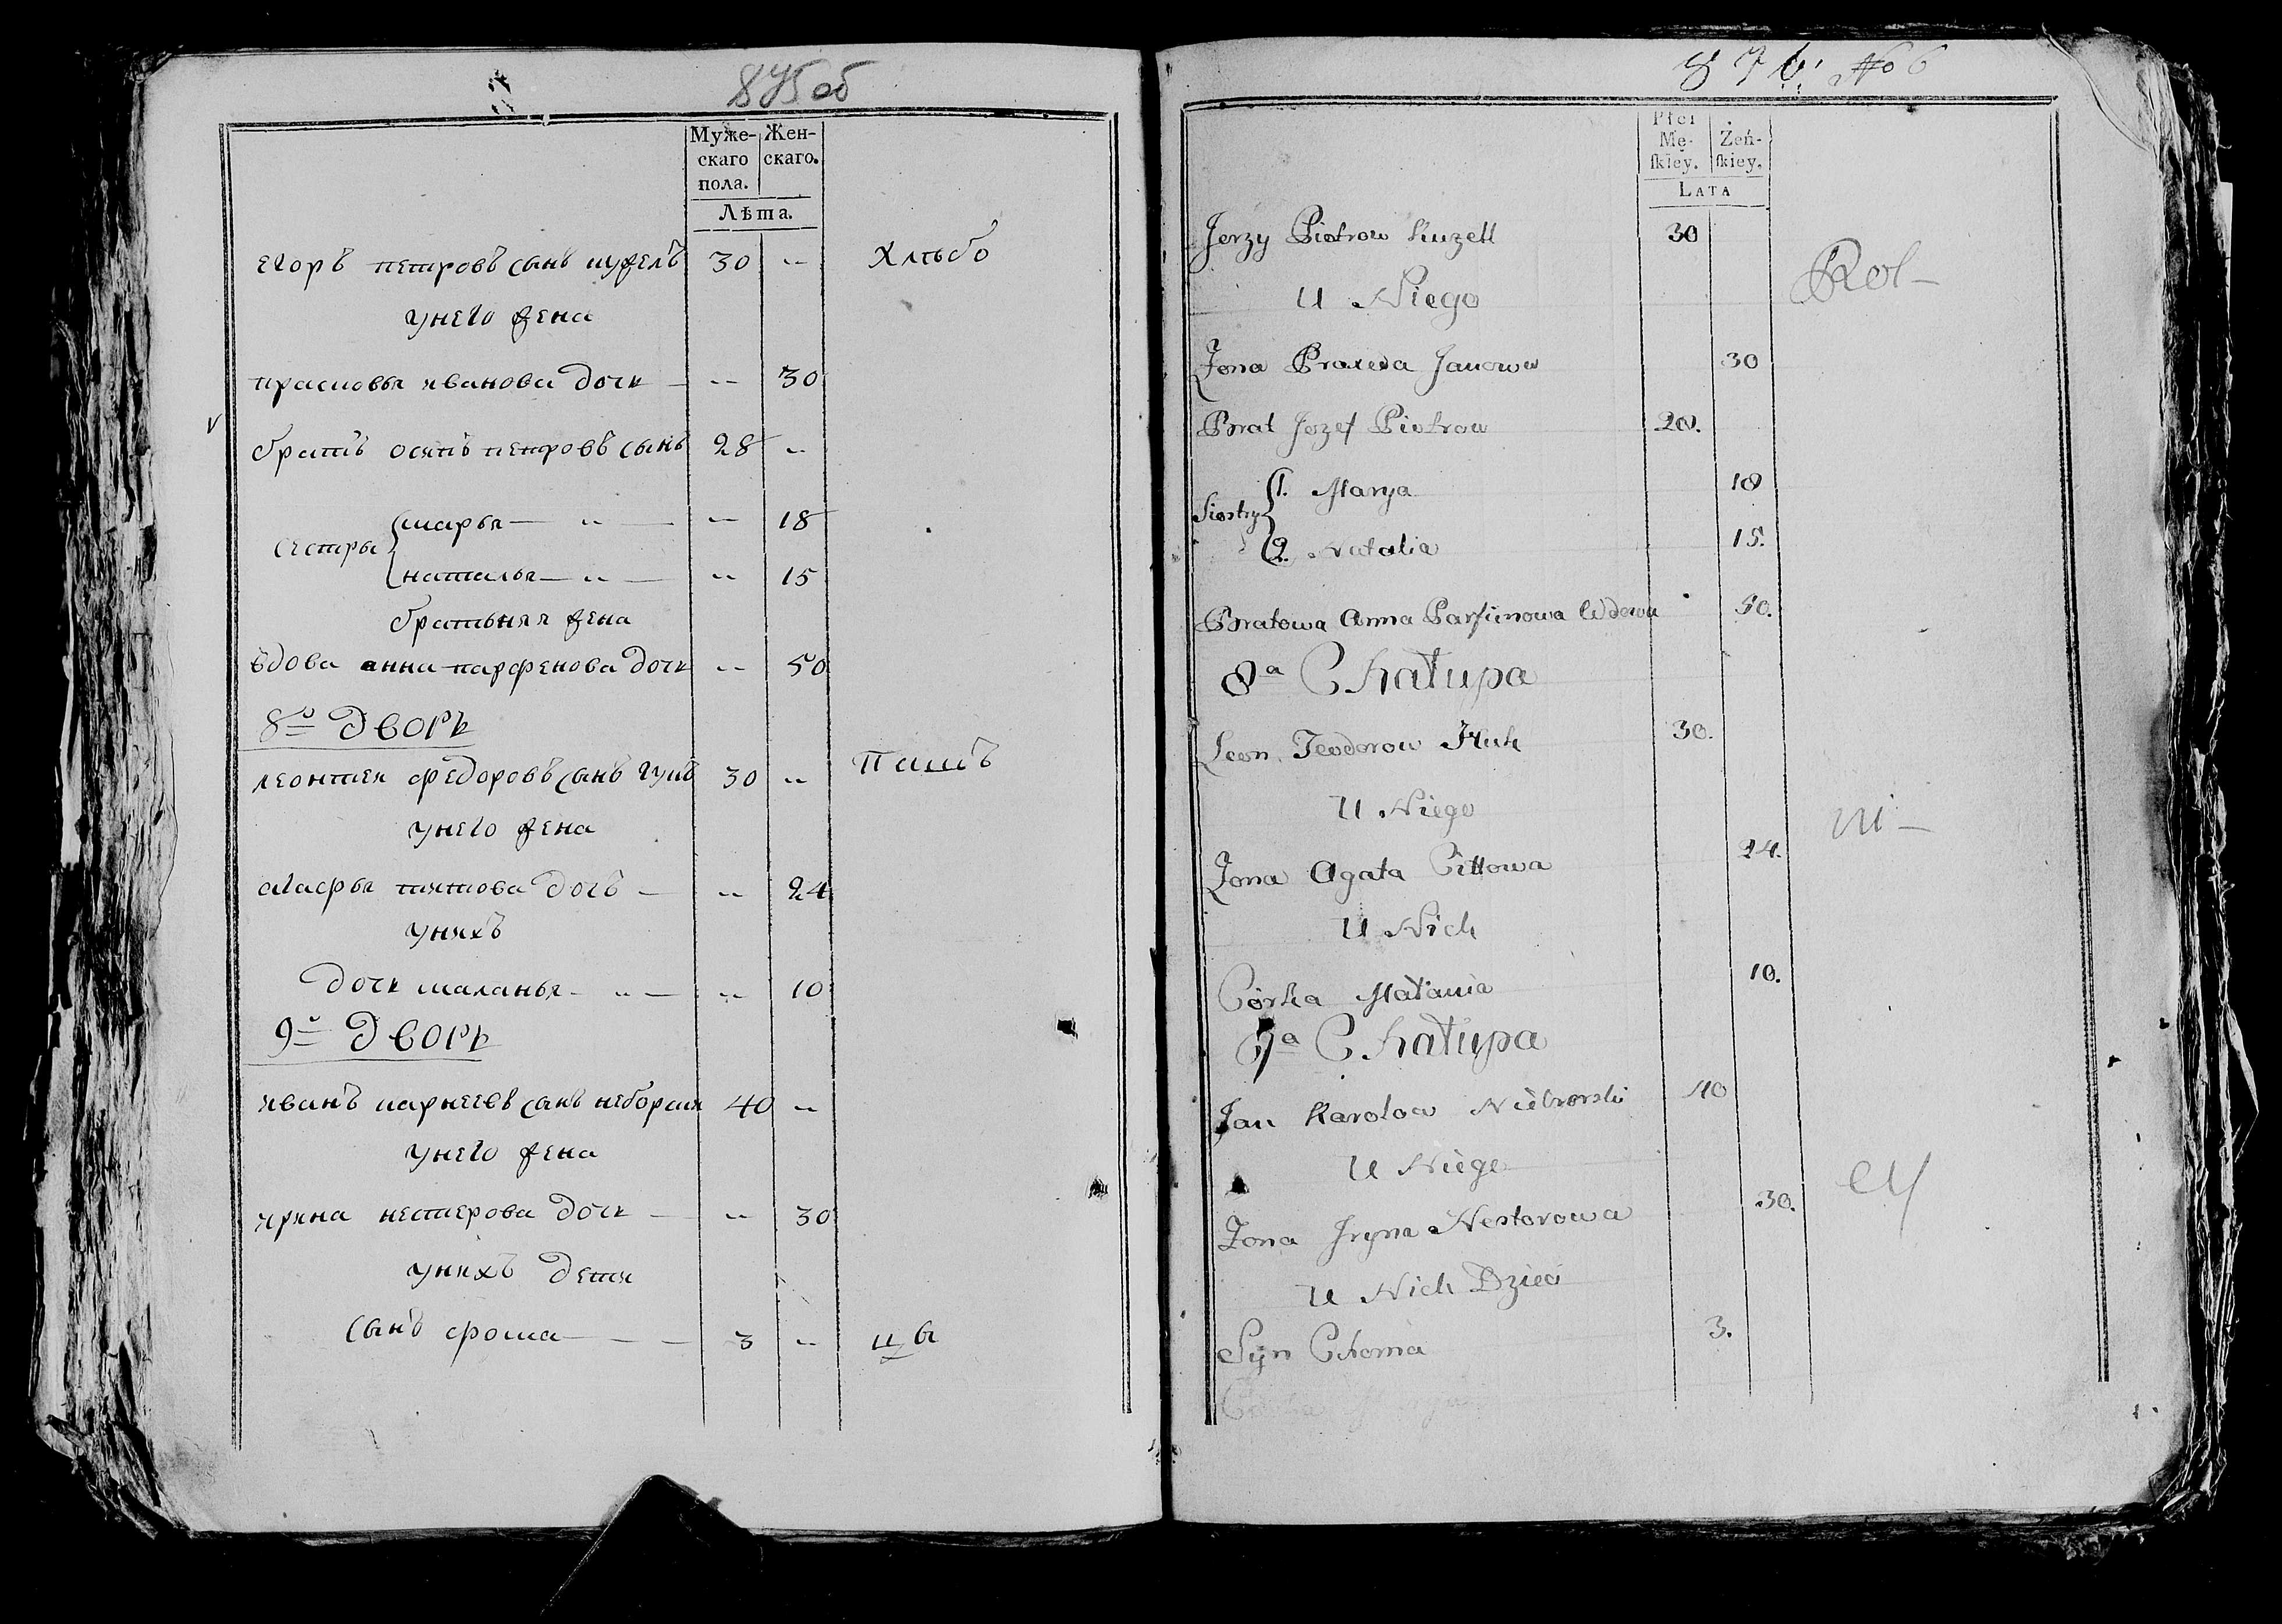 875об
Муже-
скаго
пола.
Жен-
скаго.
Лѣта.
егоръ петровъ сынъ кужелъ 30 -- Хлѣбо
унего жена
прасковья иванова дочь -- 30
братъ осипъ петровъ сынъ 28 --
сестры
марья -- 18
наталья -- 15
братьняя жена
вдова анна парфенова дочь -- 50
8й Дворъ
леонтей федоровъ сынъ гукъ 30 -- пашъ
унего жена
агафья титова дочь -- 24
унихъ
дочь маланья -- 10
9й Дворъ
иванъ карнеевъ сынъ неборски 40 --
унего жена
ирина нестерова дочь -- 30
унихъ дети
сынъ фома 3 -- цы
876. No 6
Płci
Mę-
ſkiey.
Żeń-
ſkiey.
Lata
Jerzy Piotrow Kużell 30
U Niego
Rol-
Żona Praxeda Janowa 30
Brat Jozef Piotrow 28.
Siostry
1. Marya 18
2. Natalia 15.
Bratowa Anna Parfienowa Wdowa 50.
8a Chałupa
Leon Teodorow Huk 30.
U Niego
ni-
Żona Agata Tittowa 24.
U Nich
Córka Małania 10.
9a Chałupa
Jan Karolow 40
U Niego
cy
Żona Iryna Nestorowa 30.
U Nich Dzieci
Syn Choma 3.